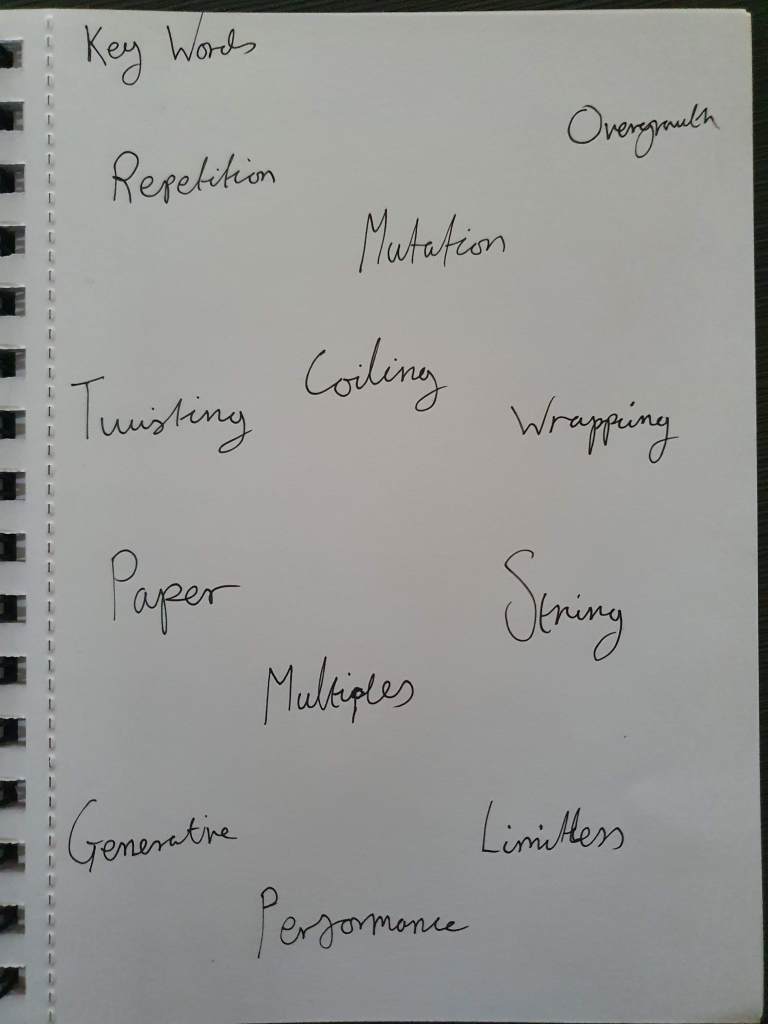 Key Words
Overgrowth
Repetition
Mutation
Coiling
Twisting
Wrapping
Paper
String
Multiples
Generative
Limitless
Performance